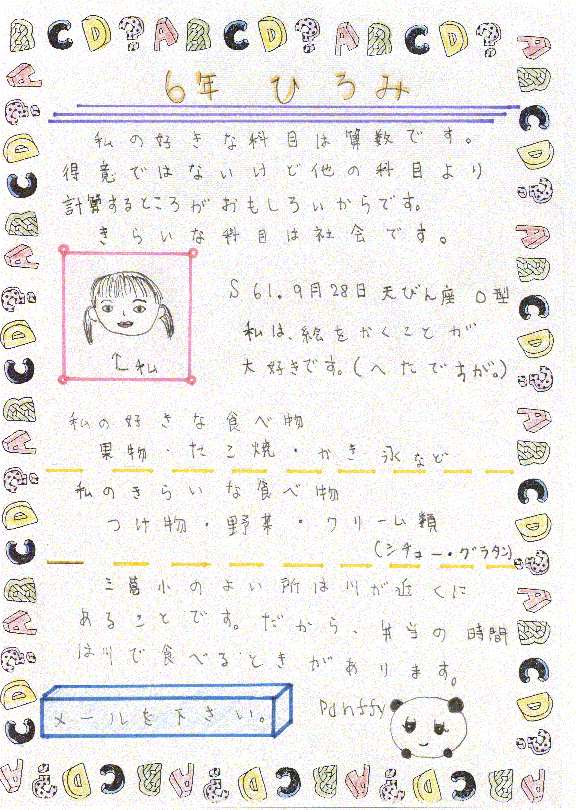 6年 ひろみ
私の好きな科目は算数です。
得意ではないけど他の科目より
計算するところがおもしろいからです。
きらいな科目は社会です。
S 61.9月28日 天びん座 O型
私は、絵をかくことが
大好きです。(へたですが。)
↑私
私の好きな食べ物
果物・たこ焼・かき氷など
私のきらいな食べ物
つけ物・野菜・クリーム類
(シチュー・グラタン)
三葛小のよい所は川が近くに
あることです。だから、弁当の時間
は川で食べるときがあります。
メールを下さい。
Panffy